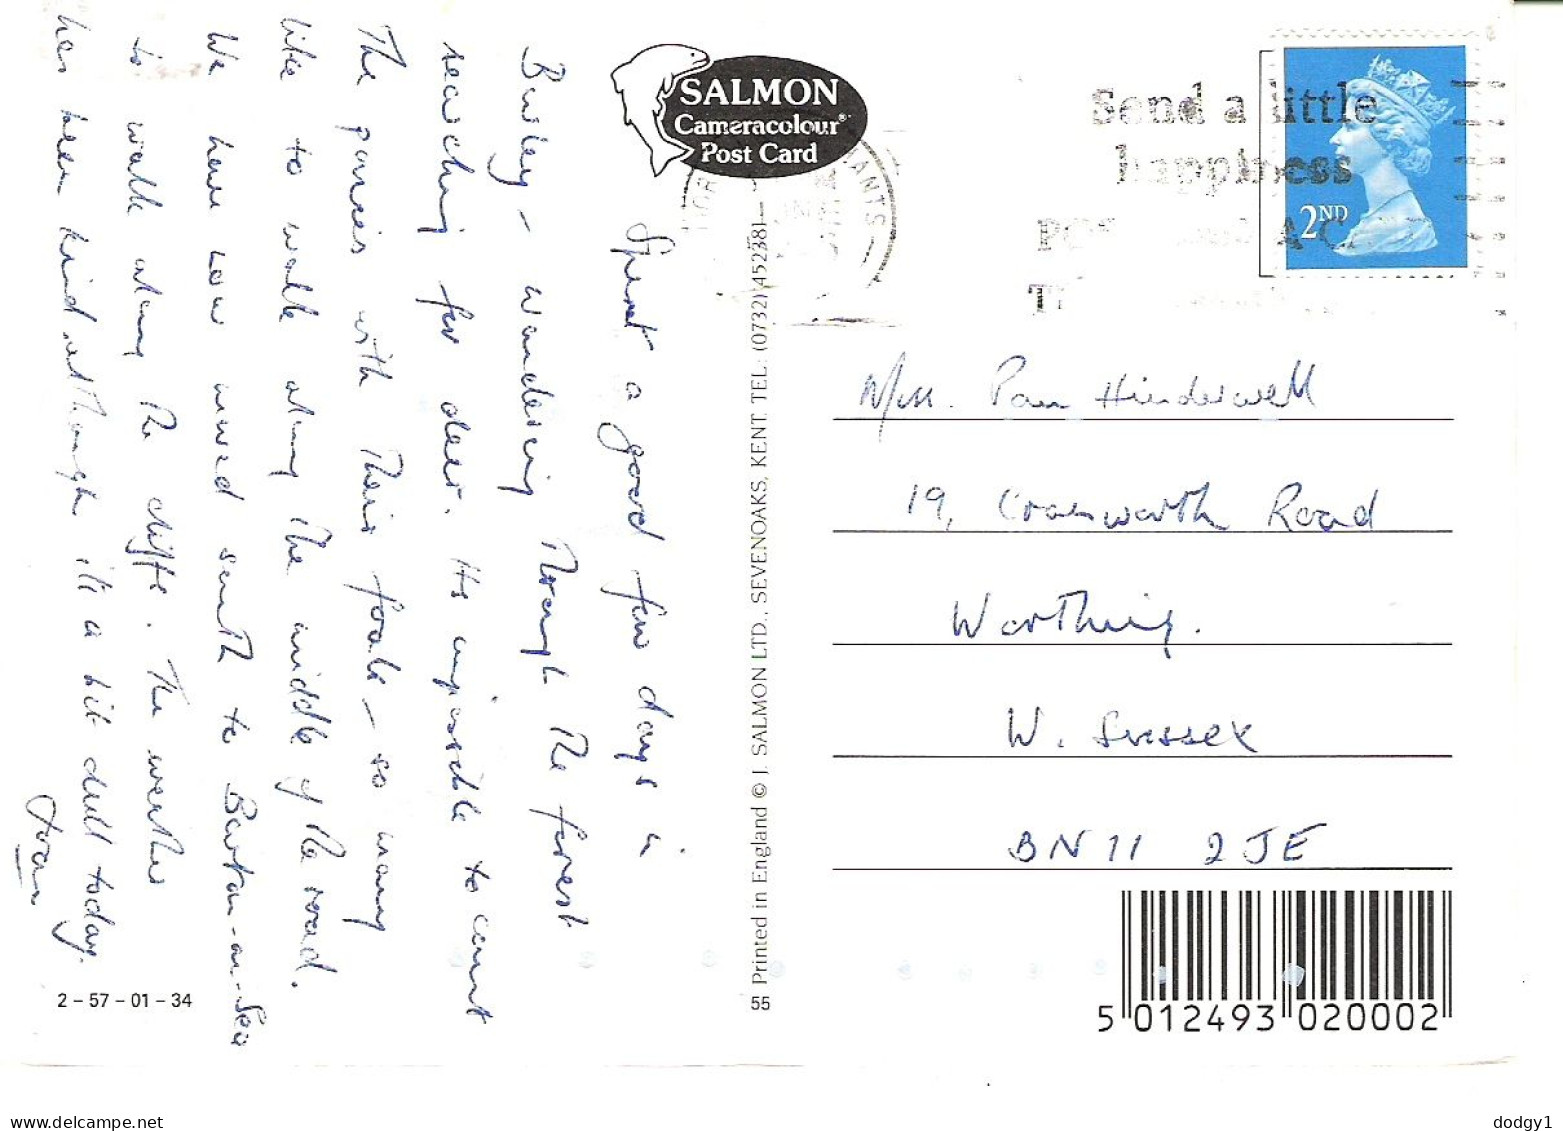 Spent a good few days in
Burley – wandering through the forest
searching for deer. Its impossible to count
The ponies with their foals – so many
like to walk along the middle of the road.
We have now moved south to Barton-on-Sea
to walk along the cliffs. The weather
has been kind although its a bit dull today.
Joan
2 – 57 – 01 – 34
SALMON
Cameracolour®
Post Card
Printed in England © J. SALMON LTD., SEVENOAKS, KENT. TEL: (0732) 452381
55
Send a little
happiness
A CA
2ND
ANTS
Pam Hinderwell
19, Cransworth Road
Worthing.
W. Sussex
BN11 2JE
5 012493 020002
delcampe.net
dodgy1